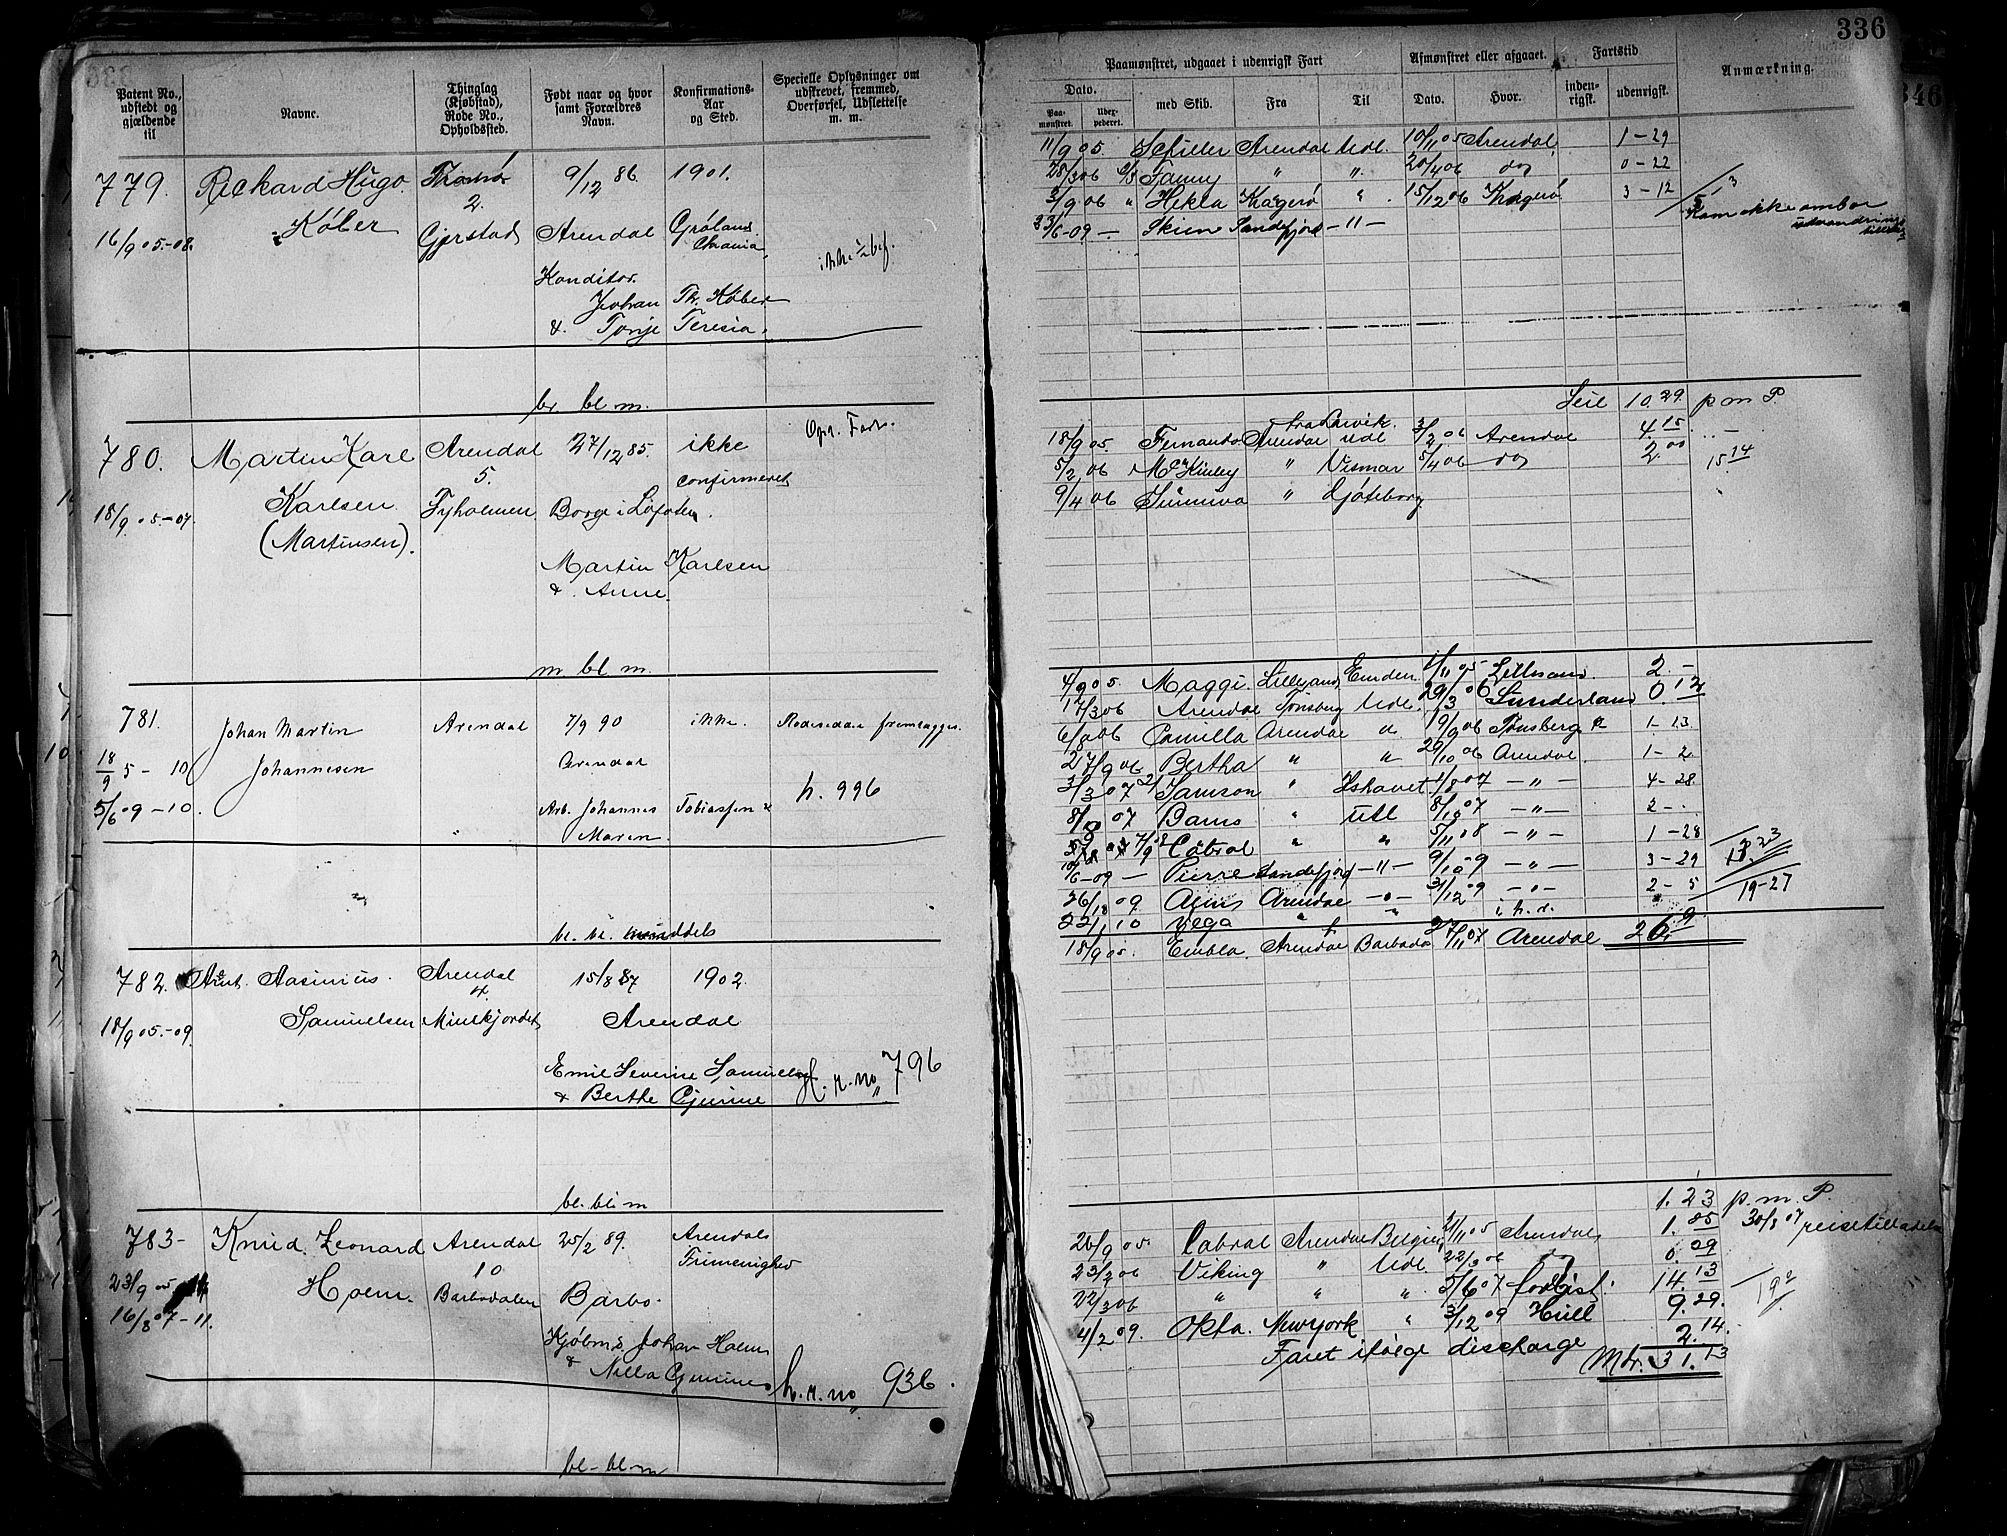 336
346
Patent No., udstedt og gjældende til
Navne.
Thinglag (Kjøbstad), Rode No., Opholdssted.
Født naar og hvor samt Forældres Navn.
Konfirmations- Aar og Sted.
Specielle Oplysninger om udskrevet, fremmed, Overførsel, Udslettelse m. m.
Paamønstret, udgaaet i udenrigsk Fart
Afmønstret eller afgaaet.
Fartstid
Anmærkning.
Dato.
Paa- mønstret.
Uder- pederet.
med Skib.
Fra
Til
Dato.
Hvor.
inden- rigsk.
udenrigsk.
779. Rickard Hugo Tromø 9/12 86. 1901.
Køber 2.
16/9 05.-08. Gjerstad Arendal
Konditor.
Johan Th. Køber
& Tonje Teresia.
br. bl. m.
11/9 05. Schiller Arendal Udl. 10/11 05 Arendal 1-29
28/3 06 Fanny " ". 20/4 06 do 0-22
3/9 06 " Hekla Kragerø ". 15/12 06 Kragerø 3-12
Skien Sandefjord -"-
Kom ikke ombor
780. Martin Karl Arendal 27/12 85. ikke
Karlsen 5. confirmeret
18/9 05.-07. (Martinsen). Tyholmen Borge i Lofoten.
Martin Karlsen
& Anne.
m bl m.
Seil 10.29 p m P.
18/9 05. Fernando Arendal Udl 3/2 06 Arendal 4.15
5/2 06 Mc Kinley " Vismar 5/4 06 do 2.00
15.14
9/4 06 Sunniva " Gjöteborg
781. Johan Martin Arendal 7/9 90 ikke. Rodesedda fremlagges.
18/9 5 - 10 Johannesen Arendal
h. 996
5/6 09-10. Arb. Johannes Tobiassen &
Maren.
bl. bl. middels
4/9 05. Maggi. Lillesand Emden 1/11 05 Lillesand 2.-
17/3 06 Arendal Tønsberg Udl. 29/3 06 Sunderland 0.12
6/8 06 Camilla Arendal " 19/9 06 Tønsberg 1-13
27/9 06 Bertha " " 29/10 06 Arendal. 1-2
3/3 07 Samson " Ishavet 1/8 07 -"- 4-28
8/8 07 Bams " Utl 8/10 07 -"- 2-.
Cabral " " 5/11 08 -"- 1-28
10/6-09 - Pierre Sandefjord -"- 9/10 09 -"- 3-29
26/10 09 Arendal -"- 31/12 09 -"- 2-5
19-27
22/1 10 Vega " " i h. d.
782. Aasinius Arendal 15/8 87 1902.
4.
18/9 05.-09. Samuelsen Arendal
Emil Severin Samuelsen
& Berthe Gjurine
H. r. no 796
bl. bl. m
18/9 05. Embla. Arendal Barbado 27/11 07 Arendal 26.9
783- Knud Leonard Arendal 25/2 89. Arendals
10 Frimenighed
23/9 05 Holm. Barbodalen Barbo.
16/8 07-11.
Kjøbm. Johan Holm
& Nilla Gjurine
h. r. no 936.
bl- bl- m
1.23 p. m. P.
26/9 05 Cabral Arendal Belgien 21/11 05 Arendal 1.25
30/8 07 reisetilladelse
23/2 06 Viking " Udl. 22/3 06 do 0.29
22/3 06 " " " 5/6 07 14.13
19.2
4/2 09. Okta. New York " 3/12 09 Hull 9.29.
Faret ifølge discharge 2.14.
Mdr. 31.13